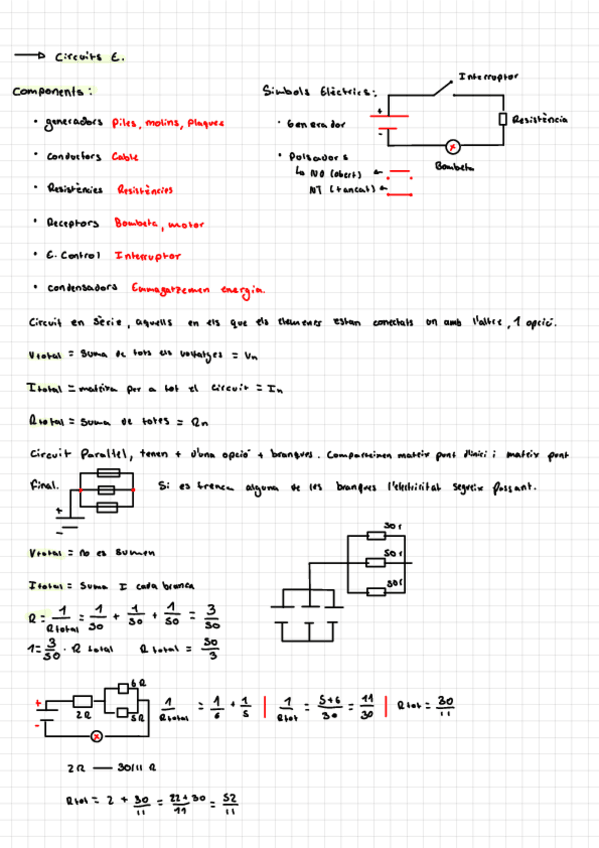 → Circuits E.
Components:
Símbols Elèctrics:
Interruptor
Resistència
Bombeta
+
-
• generadors Piles, molins, Plaques
• conductors Cable
• Resistències Resistències
• Receptors Bombeta, motor
• E. Control Interruptor
• condensadors Emmagatzemen energia.
• Generador
• Polsadors
↳ NO (obert)
NT (tancat)
Circuit en sèrie, aquells en els que els elements estan conectats un amb l'altre, 1 opció.
Vtotal = Suma de tots els voltatges = Vn
Itotal = mateixa per a tot el circuit = In
Rtotal = Suma de totes = Rn
Circuit Parallel, tenen + d'una opció + branques. Comparteixen mateix punt d'inici i mateix punt
final.
Si es trenca alguna de les branques l'electricitat segueix passant.
+
-
Vtotal = no es sumen
Itotal = Suma I cada branca
R = 1/Rtotal = 1/50 + 1/50 + 1/50 = 3/50
1 = 3/50 · R total R total = 50/3
50r
50r
50r
+
-
2R
6R
5R
1/Rtotal = 1/6 + 1/5 | 1/Rtot = 5+6/30 = 11/30 | Rtot = 30/11
2R — 30/11 R
Rtot = 2 + 30/11 = 22+30/11 = 52/11